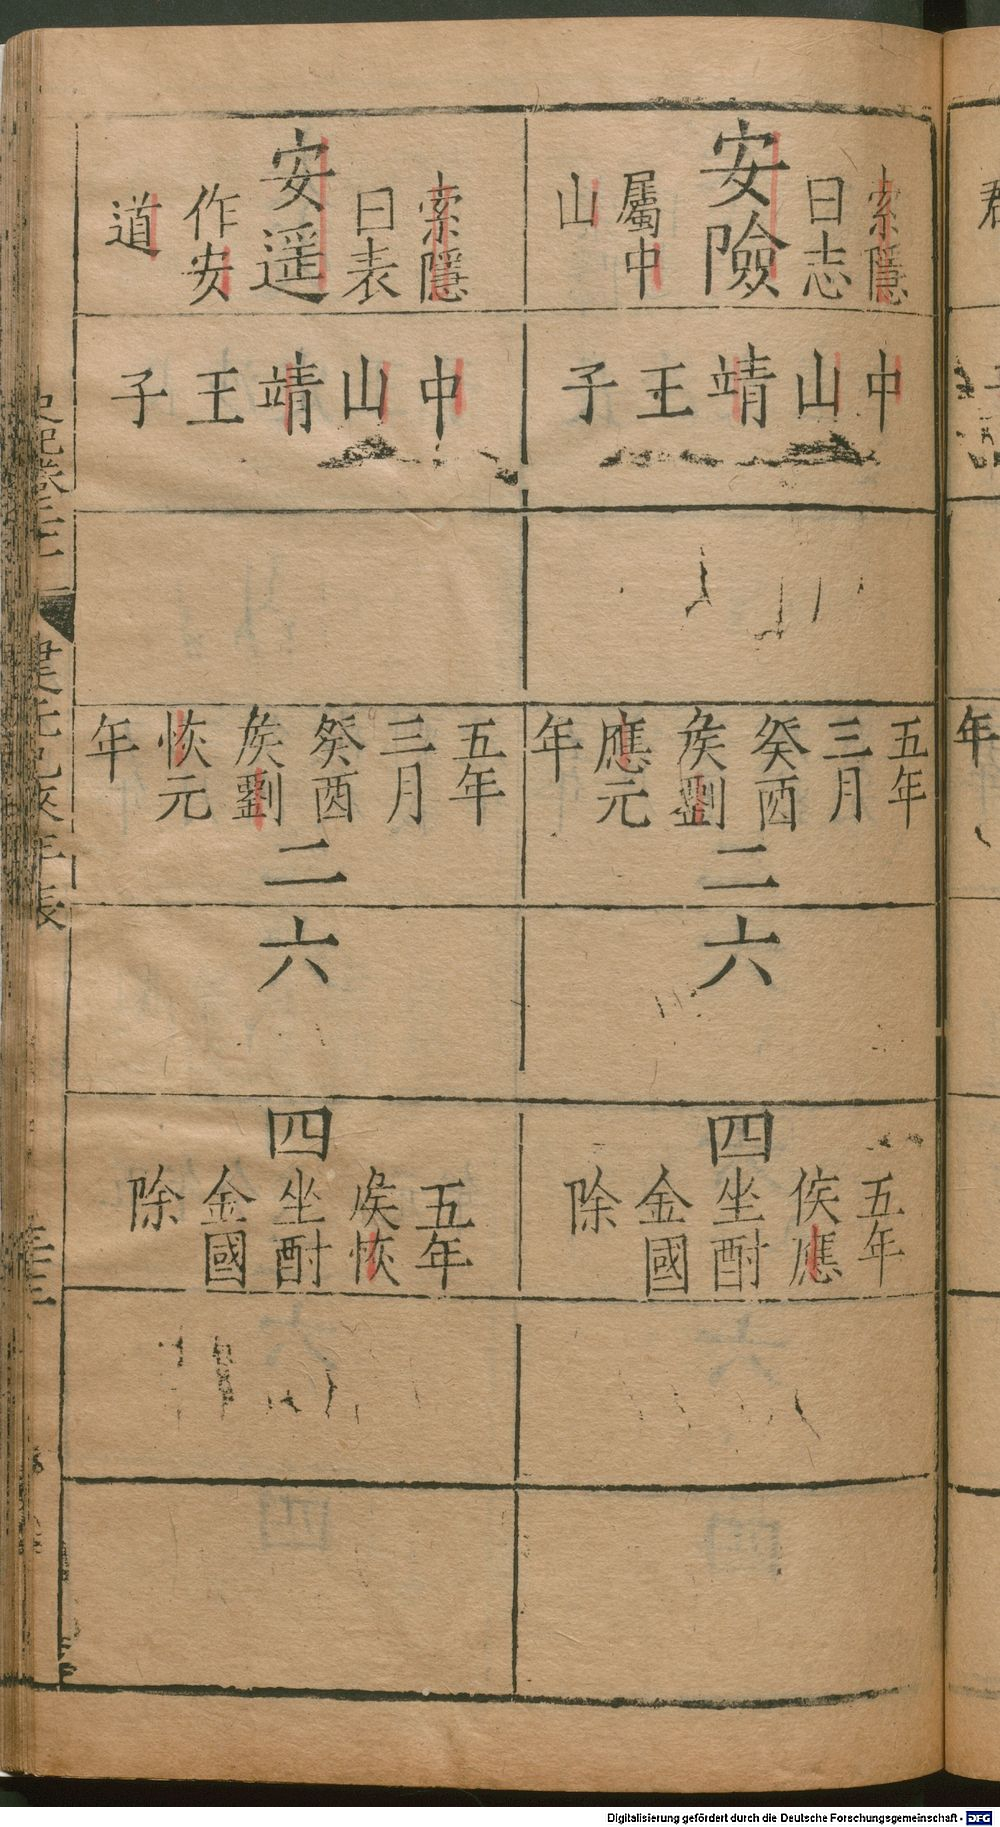 安險
索隱
曰志
屬中
山
中山靖王子
五年
三月
癸酉
侯劉
應元
年
二
六
四
五年
侯應
坐酎
金國
除
安遥
索隱
曰表
作安
道
中山靖王子
五年
三月
癸酉
侯劉
恢元
年
二
六
四
五年
侯恢
坐酎
金國
除
年
Digitalisierung gefördert durch die Deutsche Forschungsgemeinschaft - DFG